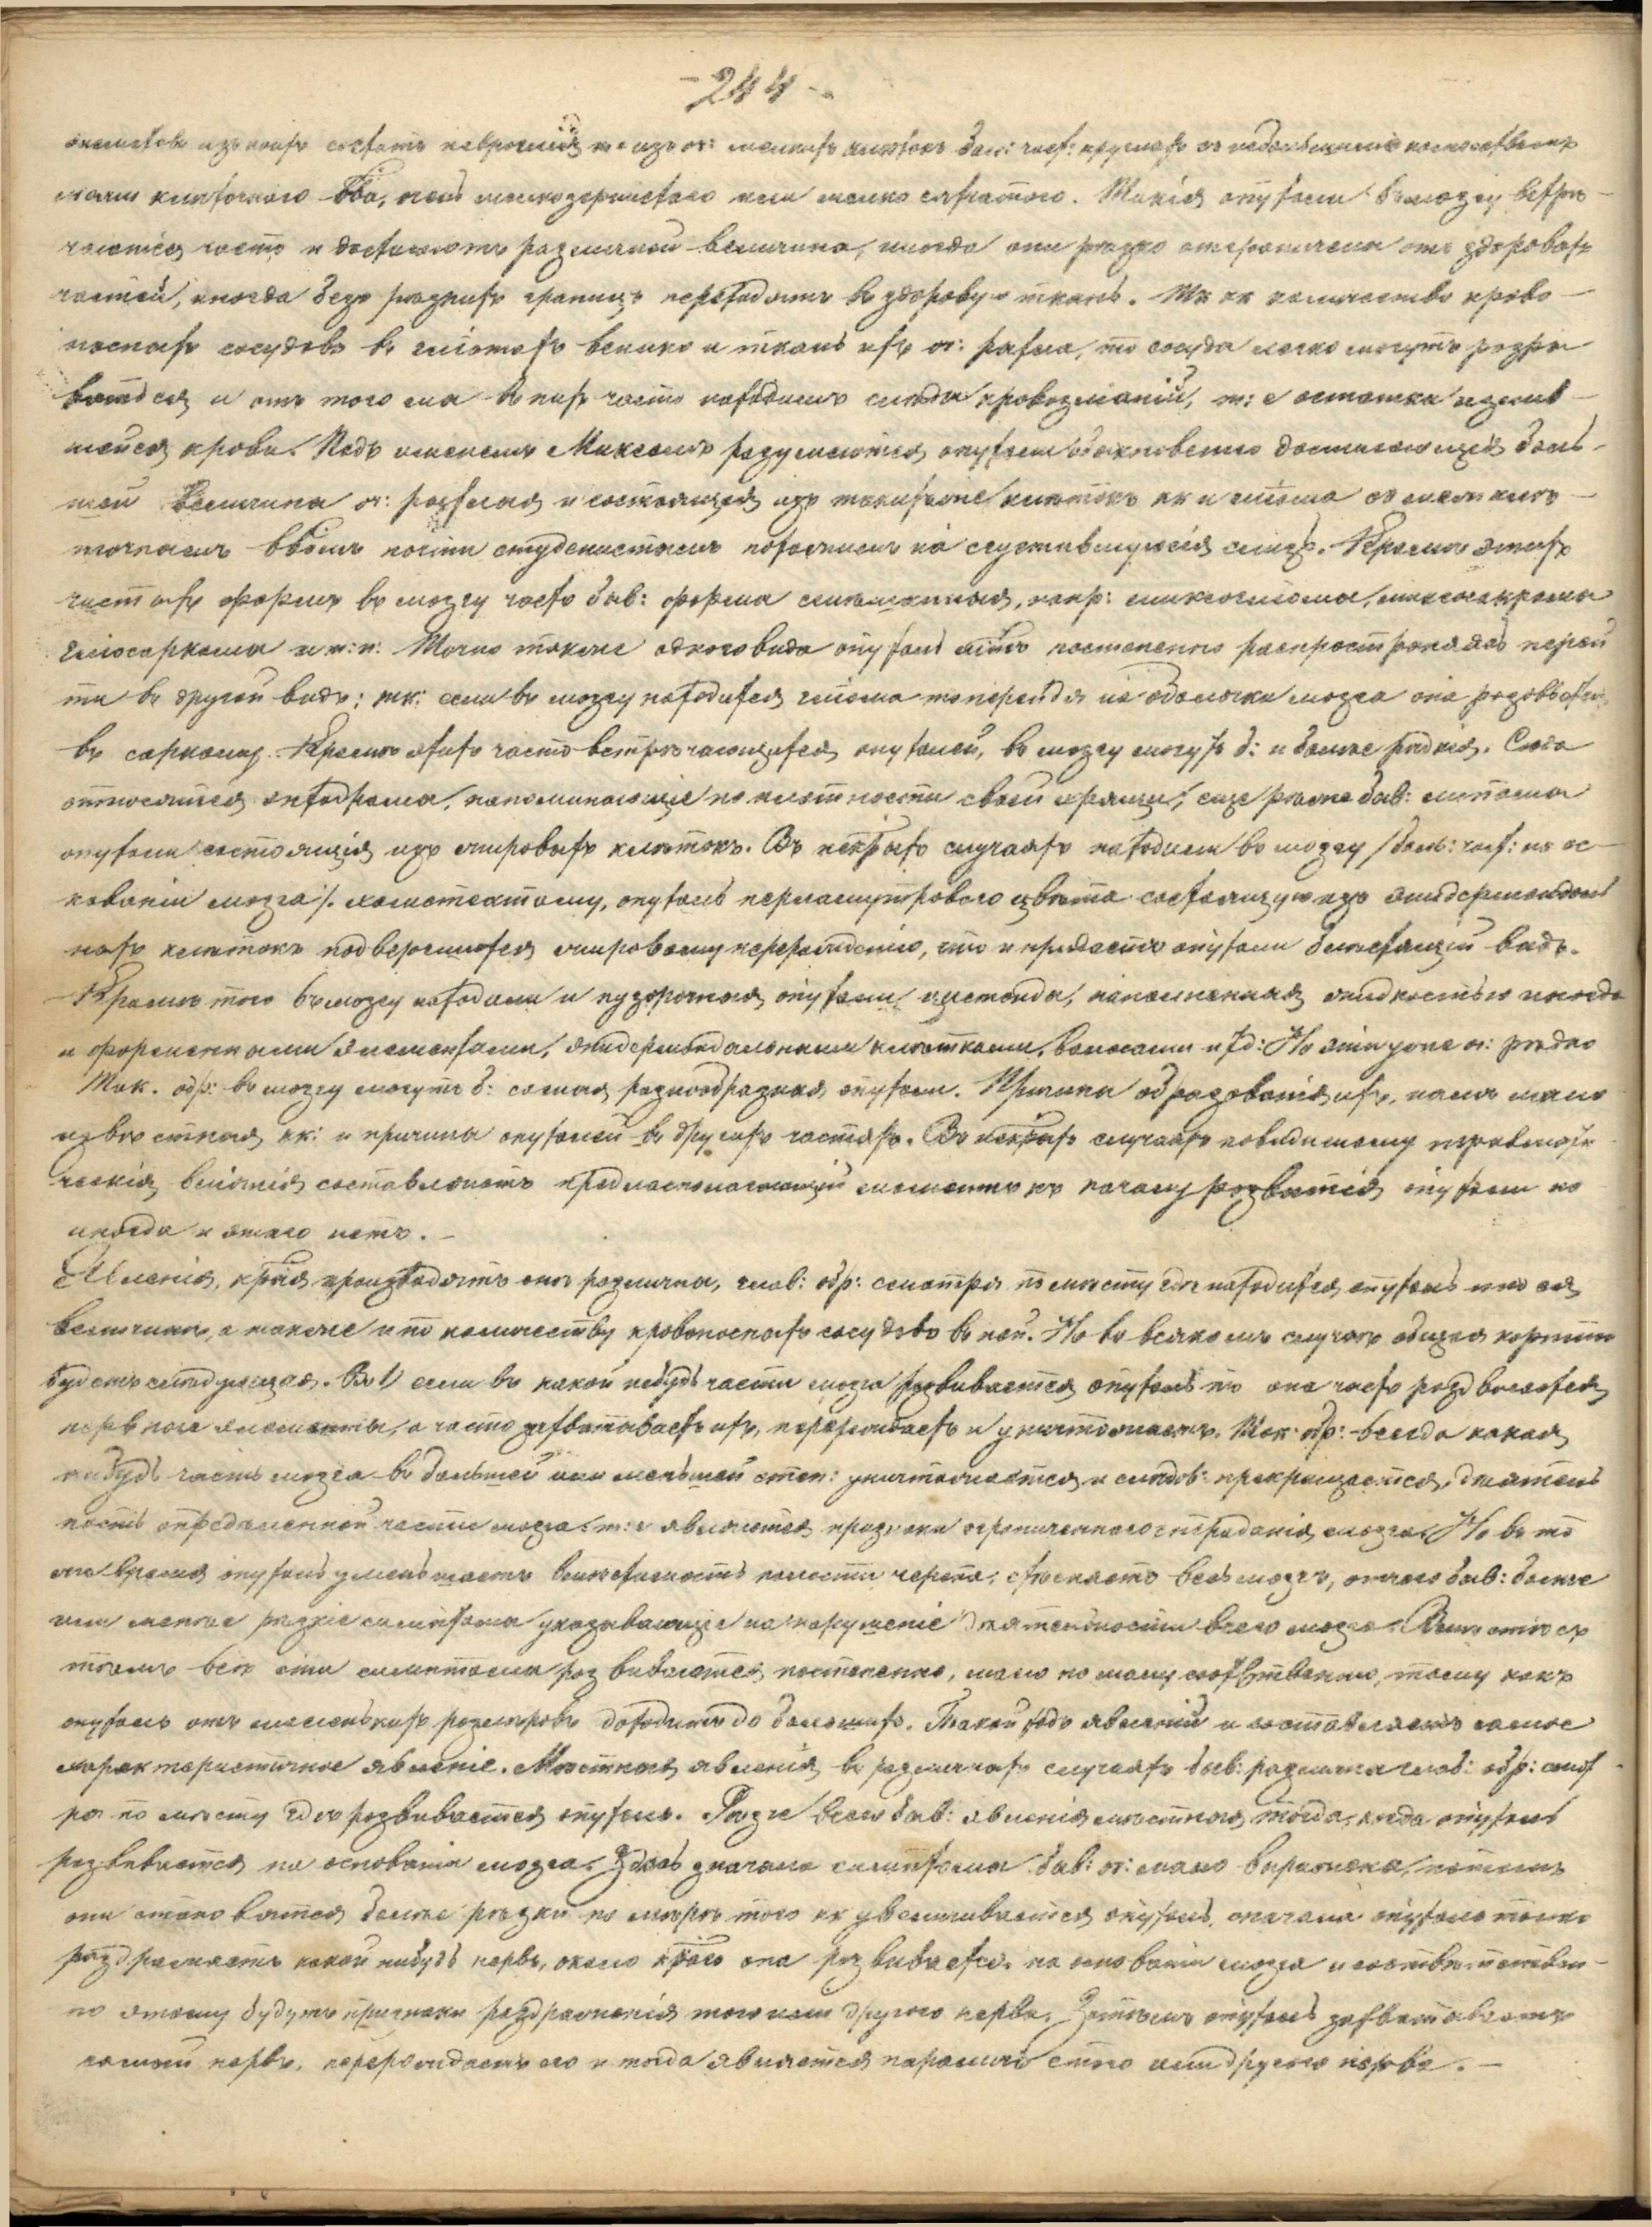 - 244 -
элементовъ изъ коихъ состоитъ неврогліа т: е изъ оч: мелкихъ клѣтокъ бол: част: круглыхъ съ небольшимъ количествомъ
меж клѣточнаго в-ва, очень мелкозернистаго или мелко сѣтчатого. Такія опухоли въ мозгу встрѣ-
чаются часто и достигаютъ различной величины, иногда они рѣзко отграничены отъ здоровыхъ
частей, иногда безъ рѣзкихъ границъ переходятъ въ здоровую ткань. Тк кк количество крово-
носныхъ сосудовъ въ гліомахъ велико и ткань ихъ оч: рыхла, то сосуды легко могутъ разры
ваться и отъ того мы въ нихъ часто находимъ слѣды кровоизліяній, т: е остатки излив-
шейся крови. Подъ именемъ Миксомъ разумѣются опухоли обыкновенно достигающія боль-
шой величины оч: рыхлыя и состоящія изъ такихъ же клѣтокъ кк и гліома съ меж клѣ-
точнымъ ввомъ почти студенистымъ похожимъ на сгустившуюся слизь. Кромѣ этихъ
чистыхъ формъ въ мозгу часто быв: формы смѣшанныя, напр: миксогліома, миксосаркома
гліосаркома и т: п: Точно также одного вида опухоль можетъ постепенно распространяясь перей
ти въ другой видъ; тк: если въ мозгу находится гліома то перейдя на оболочки мозга она
въ саркому. Кромѣ этихъ часто встрѣчающихся опухолей, въ мозгу могутъ б: и болѣе рѣдкія. Сюда
относятся энхондромы, напоминающіе по плотности своей хрящи, еще рѣже быв: липомы
опухоли состоящія изъ жировыхъ клѣтокъ. Въ некрыхъ случаяхъ находили въ мозгу /боль: част: на ос-
нованіи мозга/. холестеатому, опухоль перламутроваго цвѣта состоящую изъ эпидермоидаль
ныхъ клѣтокъ подвергшихся жировому перерожденію, что и придаетъ опухоли блестящій видъ.
Кромѣ того въ мозгу находили и пузырчатыя опухоли, цистоиды, наполненныя жидкостью иногда
и форменными элементами, эпидермоидальными клѣтками, волосами и т д: Но эти уже оч: рѣдко
Так. обр: въ мозгу могутъ б: самыя разнообразныя опухоли. Причины образованія ихъ, намъ мало
извѣстныя кк: и причины опухолей въ другихъ частяхъ. Въ некрыхъ случаяхъ повидимому травмати
ческія вліянія составляютъ предрасполагающій моментъ къ началу развитія опухоли но
иногда и этого нетъ. -
Явленія, крыя производятъ онѣ различны, глав: обр: смотря по мѣсту гдѣ находится опухоль и по ея
величинѣ, а также и по количеству кровеносныхъ сосудовъ въ ней. Но во всякомъ случаѣ общая картина
будетъ слѣдующая. Во 1) если въ какой нибудь части мозга развивается опухоль то она часто раздвигаетъ
нервные элементы, а часто захватываетъ ихъ, перерождаетъ и уничтожаетъ. Так: обр: всегда какая
нибудь часть мозга въ большей или меньшей степ: уничтожается и слѣдов: прекращается дѣятель
ность опредѣленной части мозга т: е являются признаки ограниченнаго страданія мозга. Но въ то
же время опухоль уменьшаетъ вмѣстимость полости черепа, стѣсняетъ весь мозгъ, отчего быв: болѣе
или менѣе рѣзкіе симптомы указывающіе на нарушеніе дѣятельности всего мозга. Вмѣстѣ съ
тѣмъ всѣ эти симптомы развиваются постепенно, мало по малу соотвѣтственно, тому какъ
опухоль отъ маленькихъ размѣровъ доходитъ до большихъ. Такой ходъ явленій и составляетъ самое
характеристичное явленіе. Мѣстныя явленія въ различныхъ случаяхъ быв: различны глав: обр: смот-
ря по мѣсту гдѣ развивается опухоль. Рѣзче всего быв: явленія мѣстныя тогда, когда опухоль
развивается на основаніи мозга. Здѣсь сначала симптомы быв: оч: мало выражены, потомъ
они становятся болѣе рѣзки по мѣрѣ того кк увеличивается опухоль, сначала опухоль только
раздражаетъ какой нибудь нервъ, около крого она развивается на основаніи мозга и соотвѣтствен-
но этому будутъ признаки раздраженія того или другого нерва. Затѣмъ опухоль захватываетъ
самый нервъ, перерождаетъ его и тогда является параличъ того или другого нерва. -